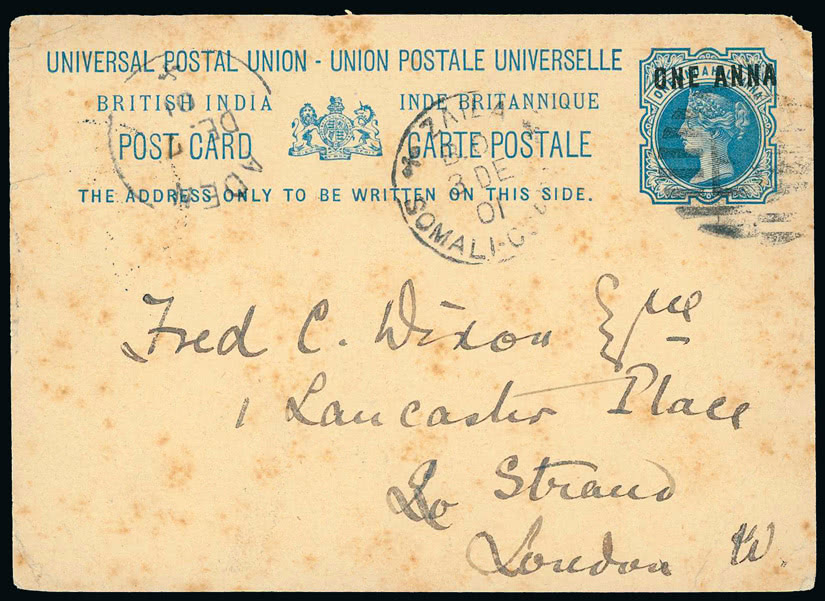 UNIVERSAL POSTAL UNION - UNION POSTALE UNIVERSELLE
BRITISH INDIA INDE BRITANNIQUE
POST CARD CARTE POSTALE
THE ADDRESS ONLY TO BE WRITTEN ON THIS SIDE.
ONE ANNA
ADEN
DE. 7
01
ZAILA
3 DE
01
SOMALI-C
Fred C. Dixon Esqre
1 Lancaster Place
Strand
London W.